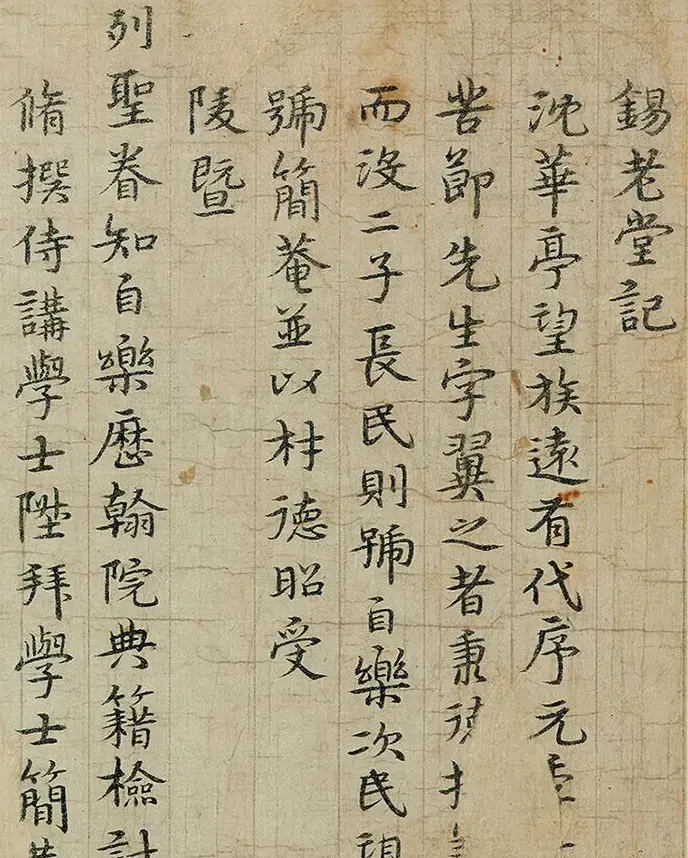 錫老堂記
沈華亭望族遠有代序元
苦節先生字翼之者秉德
而沒二子長民則號自樂次民
號簡菴並以材德昭受
陵暨
列聖眷知自樂歷翰院典籍檢討
脩撰侍講學士陞拜學士簡